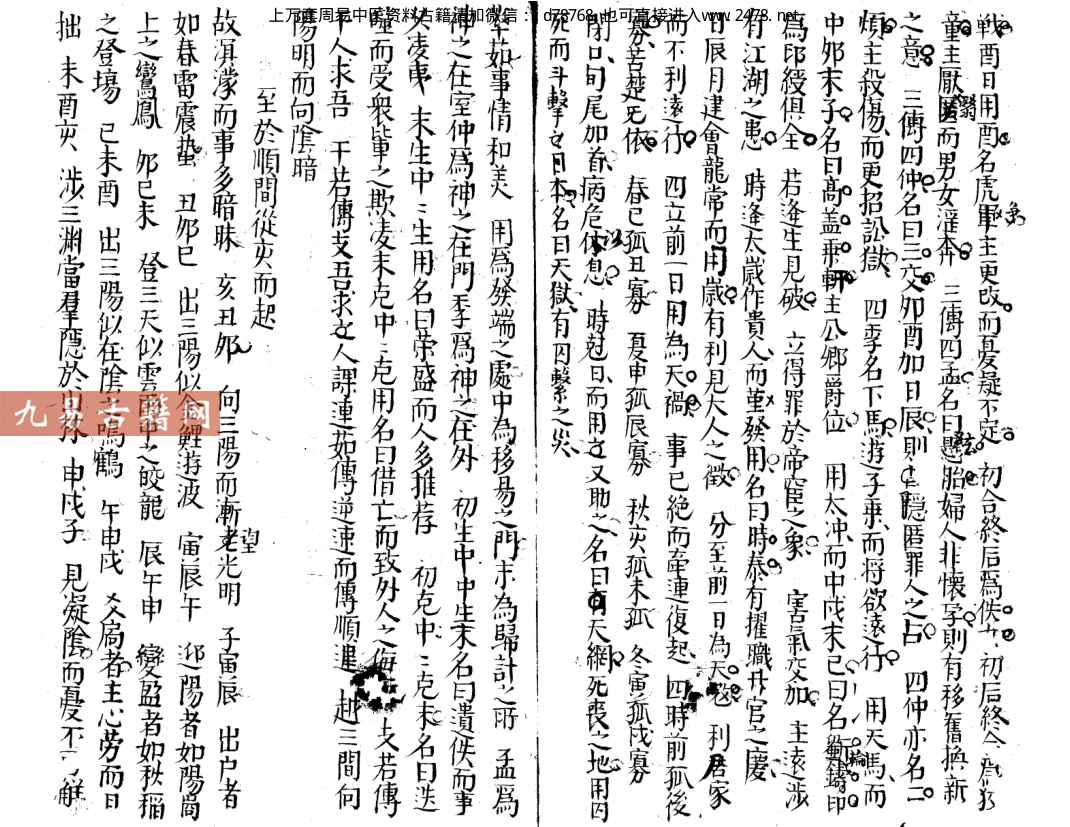 上万套周易中医资料古籍请加微信：1d78768 也可直接进入www.2478.net
戰酉日用酉名虎 主更改而憂疑不定 初合終后為佚女 初后終合
童主厭翳匿而男女淫奔 三傳四孟名曰玄胎婦人非懷孕則有移舊換新
之意 三傳四仲名曰三交夘酉加日辰則 隱匿罪人之占 四仲亦名二
煩主殺傷而更招訟獄 四季名下馬遊子乘而将欲遠行 用天馬而
中夘末子名曰髙盖乘軒主公卿爵位 用太冲而中戌末巳曰名斵輪 印
為印綬俱全 若逢生見破 立得罪於帝 之象 害氣交加 主遠涉
有江湖之患 時逢太歲作貴人而 發用名曰時泰有擢職升官之慶
日辰月建會龍常而用歲有利見大人之徵 分至前一日為天 利居家
而不利遠行 四立前一日用為天禍 事已絶而牽連復起 四時前孤後
寡苦楚无依 春巳孤丑寡 夏申孤辰寡 秋亥孤未 冬寅孤戌寡
閉口旬尾加首病危以 息 時尅日而用又助之名曰天網死喪之地用囚
死而斗擊之日本名曰天獄有囚繫之
拏茹事情和美 用為發端之處中為移易之門末為歸計之所 孟為
神之在室仲為神之在門季為神之在外 初生中中生末名曰遺佚而事
久凌夷 末生中中生用名曰荣盛而人多推荐 初克中中克末名曰迭
噬而受衆 之欺凌末克中中克用名曰借亡而致外人之侮 支若傳
干人求吾 干若傳支吾求之人課連茹傳逆連而傳順進 越三間向
陽明而向陰暗
至於順間從亥而起
故溟濛而事多暗昧 亥丑夘 向三陽而漸望光明 子寅辰 出户者
如春雷震蟄 丑夘巳 出三陽似 鯉游波 寅辰午 迎陽者如陽岡
上之鸞鳳 夘巳未 登三天似雲 中之蛟龍 辰午申 變盈者如秋稻
之登塲 巳未酉 出三陽似在陰之鳴鶴 午申戌 者主心勞而日
拙 未酉亥 涉三淵當羣隱於山林 申戌子 見凝陰而憂不 解
九易古籍國